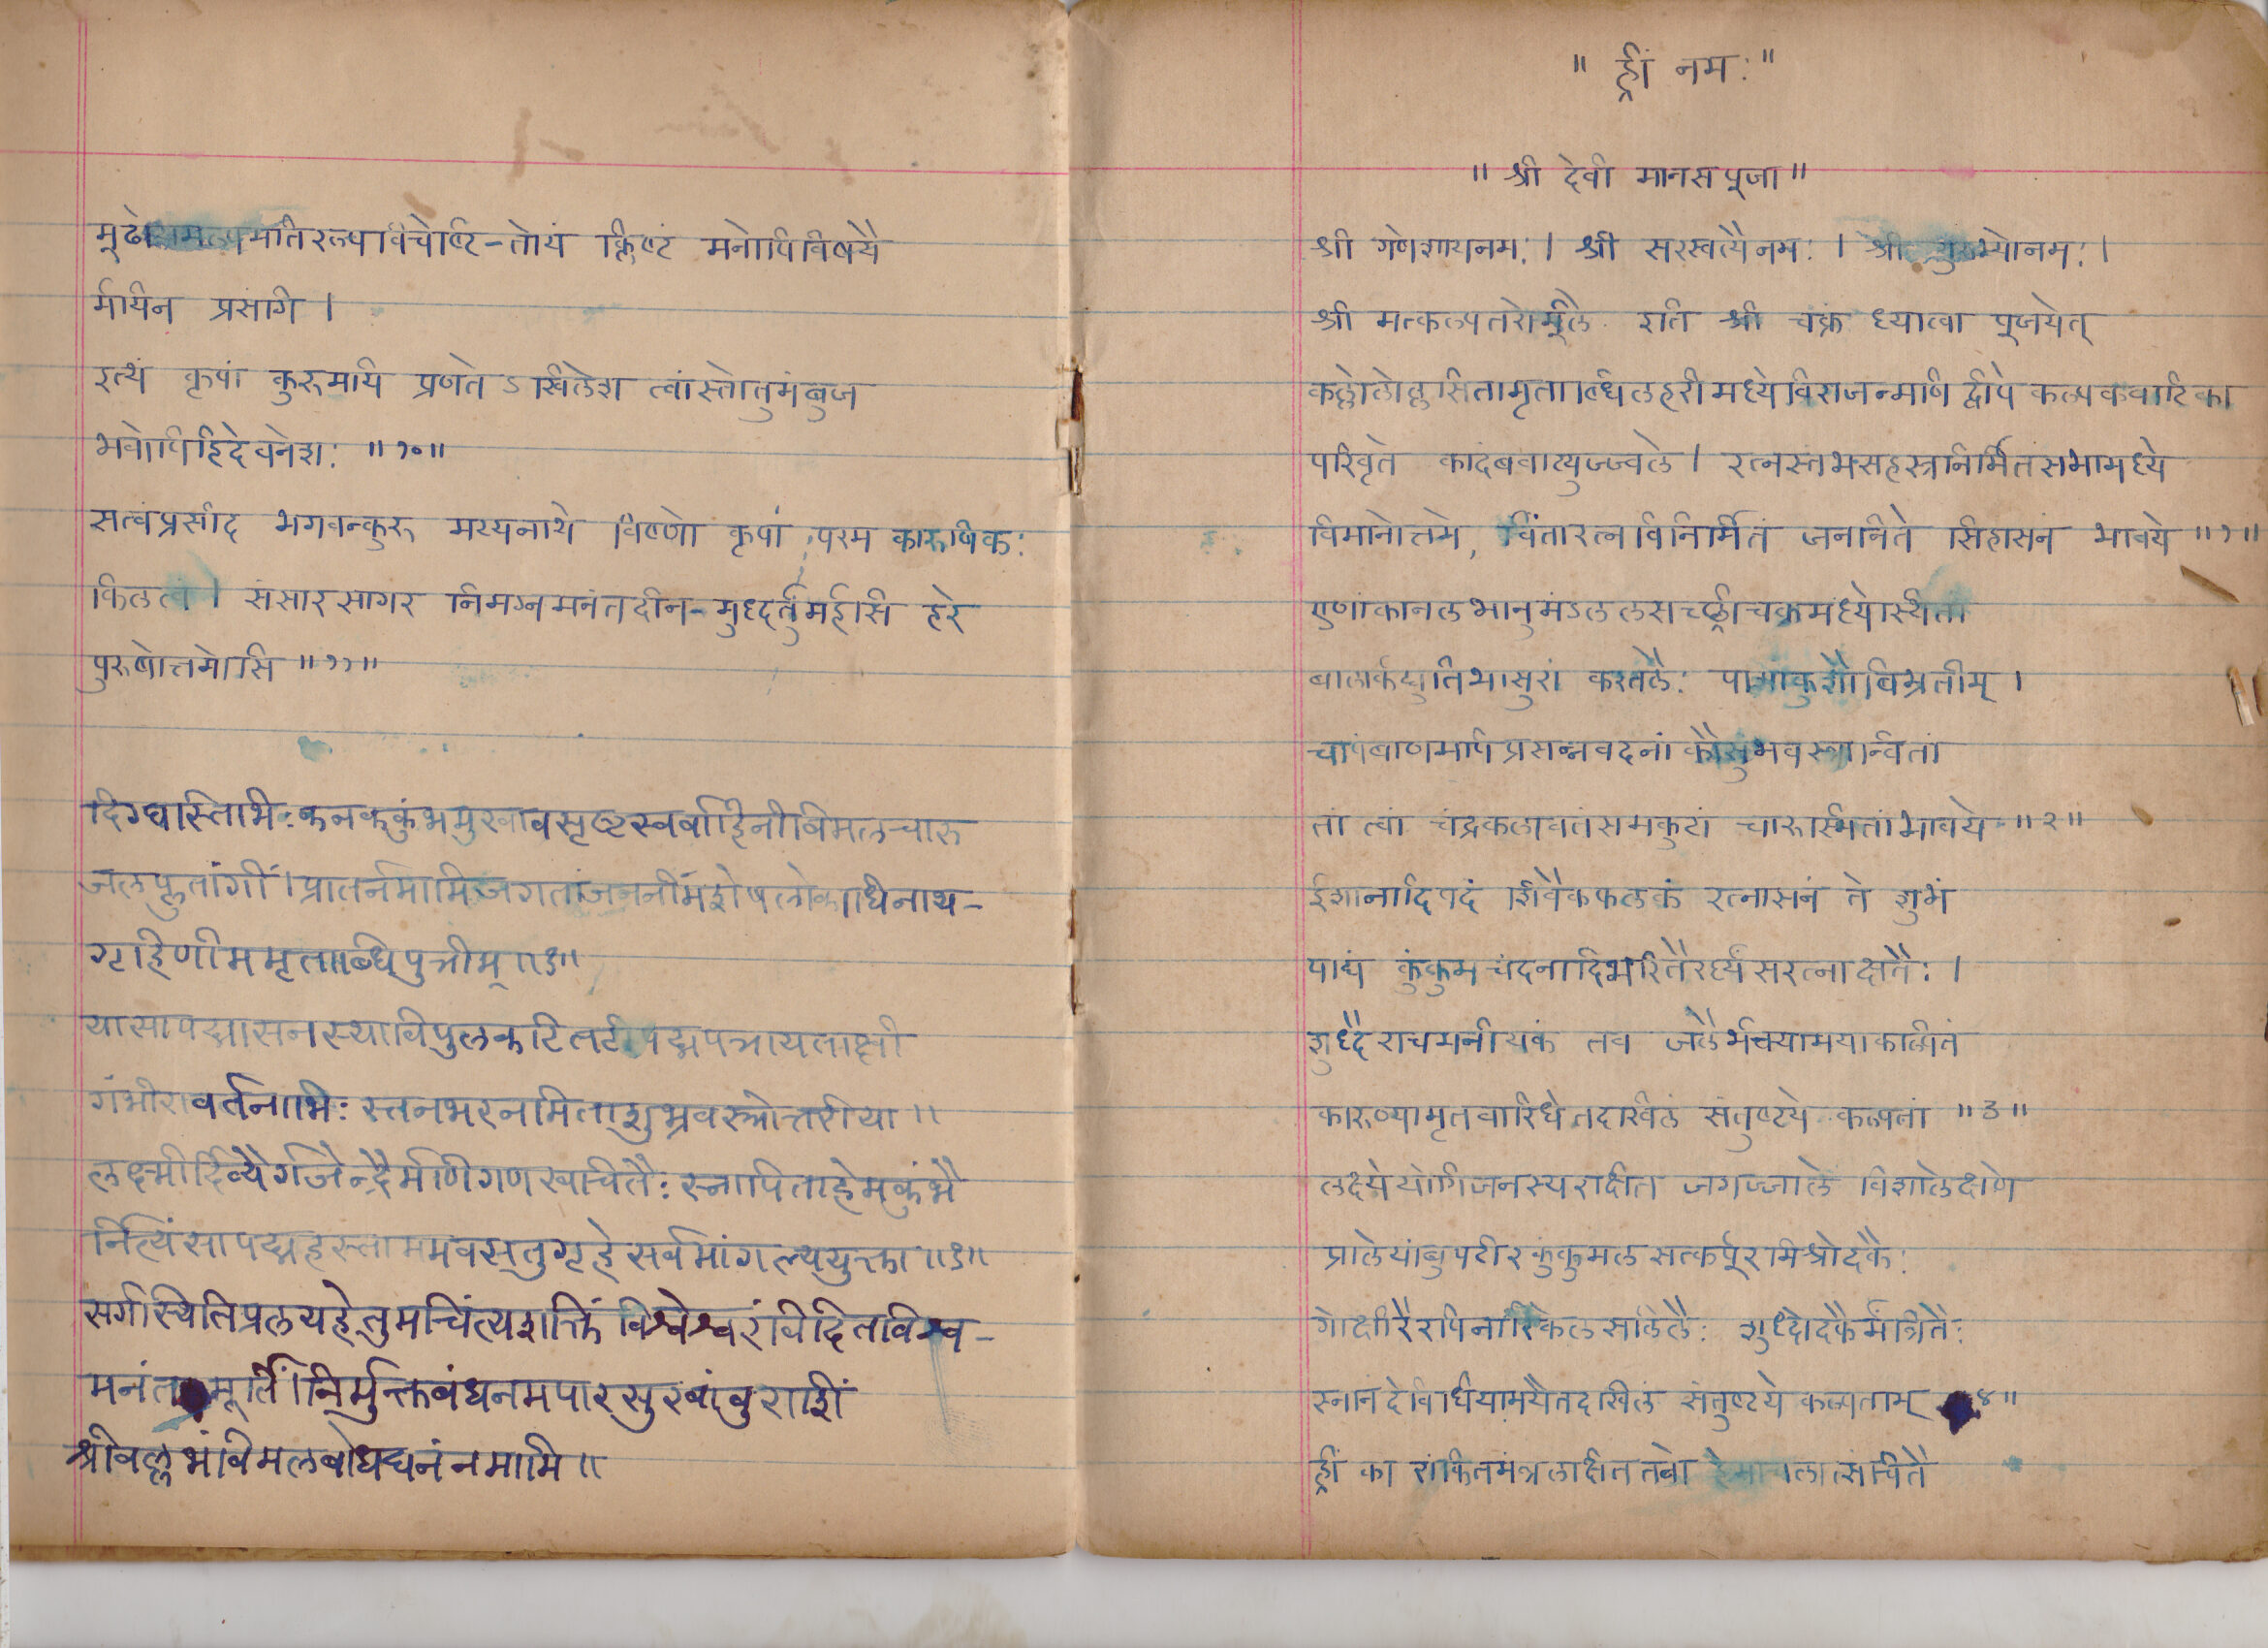 मूढोऽयमल्पमतिरल्पविचेष्टि-तोयं क्लिष्टं मनोपिविषयै
र्मयिन प्रसंगि ।
इत्थं कृपां कुरुमयि प्रणते ऽखिलेश त्वांस्तोतुमंबुज
भवोपिहिदेवनेशः ॥१०॥
सत्वंप्रसीद भगवन्कुरु मय्यनाथे विष्णो कृपां परम कारुणिकः
किलत्वं । संसारसागर निमग्नमनंतदीन-मुध्दर्तुमर्हसि हरे
पुरुषोत्तमोसि ॥११॥
दिग्घस्तिभिःकनककुंभमुखावसृष्टस्वर्वाहिनीविमलचारु
जलप्लुतांगीं।प्रातर्नमामिजगतांजननीमशेषलोकाधिनाथ-
गृहिणीममृताब्धिपुत्रीम्॥१॥
यासापद्मासनस्थाविपुलकटितटीपद्मपत्रायताक्षी
गंभीरावर्तनाभिः स्तनभरनमिताशुभ्रवस्त्रोत्तरीया॥
लक्ष्मीर्दिव्यैर्गजेन्द्रैर्मणिगणखचितैः स्नापिताहेमकुंभै
र्नित्यंसापद्महस्ताममवसतुगृहे सर्वमांगल्ययुक्ता॥१॥
सर्गस्थितिप्रलयहेतुमचिंत्यशक्तिं विश्वेश्वरंविदितविश्व-
मनंतमूर्तिं।निर्मुक्तबंधनमपारसुखांबुराशिं
श्रीवल्लभंविमलबोधघनंनमामि॥
" ह्रीं नमः "
॥ श्री देवी मानसपूजा ॥
श्री गणेशायनमः । श्री सरस्वत्यैनमः । श्री गुरुभ्योनमः ।
श्री मत्कल्पतरोर्मूले इति श्री चक्रं ध्यात्वा पूजयेत्
कल्लोलोल्लसितामृताब्धिलहरीमध्येविराजन्मणि द्वीपे कल्पकवाटिका
परिवृते कादंबवाट्युज्ज्वले । रत्नस्तंभसहस्त्रनिर्मितसभामध्ये
विमानोत्तमे, चिंतारत्नविनिर्मितं जननिते सिंहासनं भावये ॥१॥
एणांकानलभानुमंडललसच्छ्रीचक्रमध्येस्थितां
बालार्कद्युतिभासुरां करतलैः पाशांकुशौबिभ्रतीम् ।
चापंबाणमपि प्रसन्नवदनां कौसुंभवस्त्रान्वितां
तां त्वां चंद्रकलावतंसमकुटां चारुस्मितांभावये ॥२॥
ईशानादिपदं शिवैकफलकं रत्नासनं ते शुभं
पाद्यं कुंकुम चंदनादिभरितैरर्घ्यंसरत्नाक्षतैः ।
शुध्दैराचमनीयकं तव जलैर्भक्त्यामयाकल्पितं
कारुण्यामृतवारिधेतदखिलं संतुष्टये कल्पतां ॥३॥
लक्ष्येयोगिजनस्यरक्षित जगज्जाले विशालेक्षणे
प्रालेयांबुपटीरकुंकुमलसत्कर्पूरमिश्रोदकैः
गोक्षीरैरपिनारिकेलसलिलैः शुध्दोदकैर्मंत्रितैः
स्नानंदेविधियामयैतदखिलं संतुष्टये कल्पताम् ॥४॥
ह्रीं का रांकितमंत्रलक्षिततनो हेमाचलात्संचितै